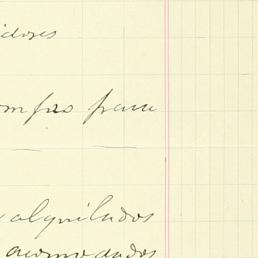 idores
ompas para
y alquilados
acomodados